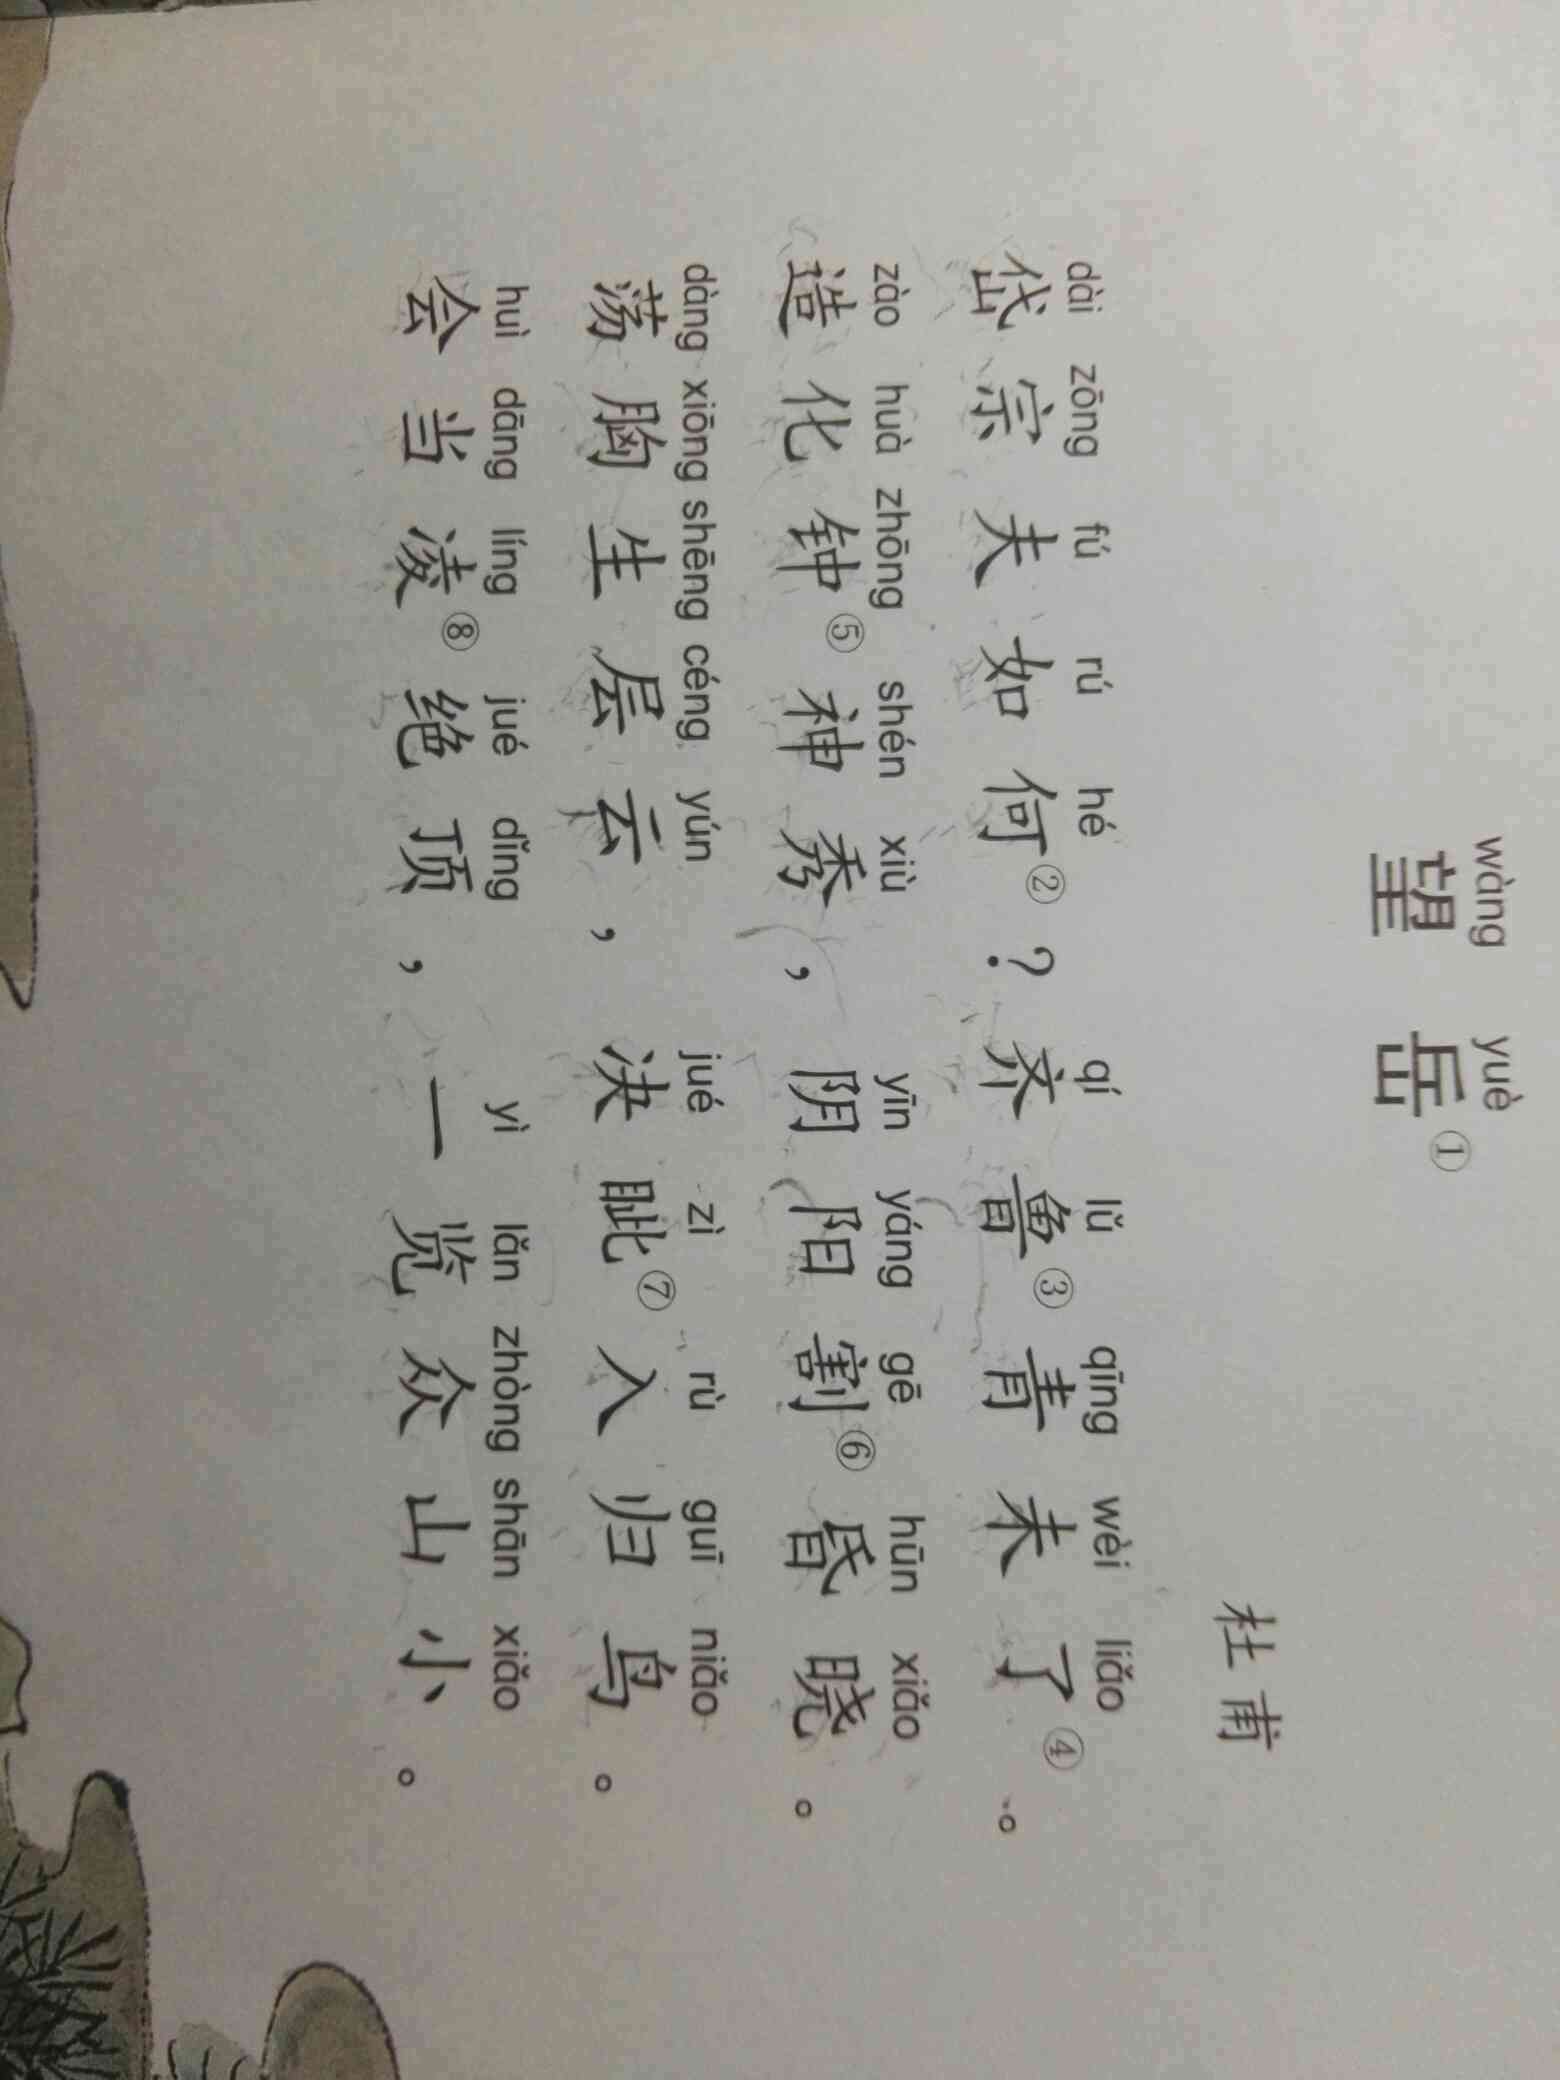 wàng yuè
望岳①
杜甫
dài zōng fú rú hé qí lǔ qīng wèi liǎo
岱宗夫如何②？齐鲁③青未了④。
zào huà zhōng shén xiù yīn yáng gē hūn xiǎo
造化钟⑤神秀，阴阳割⑥昏晓。
dàng xiōng shēng céng yún jué zì rù guī niǎo
荡胸生层云，决眦⑦入归鸟。
huì dāng líng jué dǐng yì lǎn zhòng shān xiǎo
会当凌⑧绝顶，一览众山小。